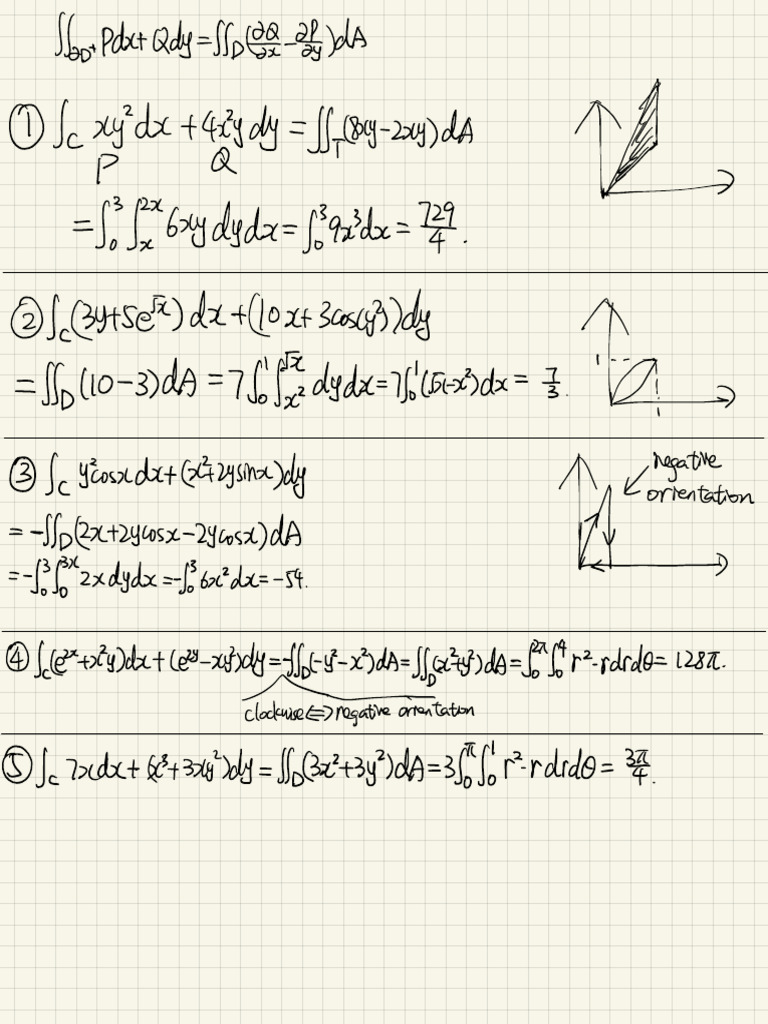 ∬_{∂D⁺} Pdx + Qdy = ∬_D (∂Q/∂x − ∂P/∂y) dA
① ∫_C xy²dx + 4x²y dy = ∬_T (8xy − 2xy) dA
P Q
= ∫_0^3 ∫_x^{2x} 6xy dy dx = ∫_0^3 9x³dx = 729/4.
② ∫_C (3y + 5e^{√x}) dx + (10x + 3cos(y²)) dy
= ∬_D (10 − 3) dA = 7∫_0^1 ∫_{x²}^{√x} dy dx = 7∫_0^1 (√x − x²) dx = 7/3.
1
1
③ ∫_C y²cosx dx + (x² + 2y sinx) dy
negative
orientation
= −∬_D (2x + 2y cosx − 2y cosx) dA
= −∫_0^3 ∫_0^{3x} 2x dy dx = −∫_0^3 6x² dx = −54.
④ ∫_C (e^{2x} + x²y) dx + (e^{2y} − xy²) dy = −∬_D (−y² − x²) dA = ∬_D (x² + y²) dA = ∫_0^{2π} ∫_0^4 r²·r dr dθ = 128π.
clockwise ⇔ negative orientation
⑤ ∫_C 7x dx + (x³ + 3xy²) dy = ∬_D (3x² + 3y²) dA = 3∫_0^π ∫_0^1 r²·r dr dθ = 3π/4.